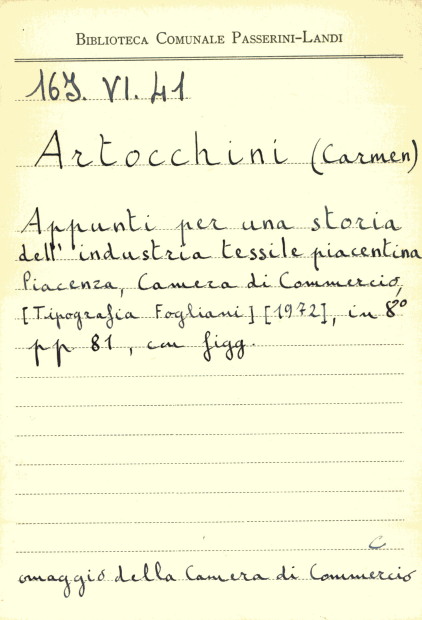 BIBLIOTECA COMUNALE PASSERINI-LANDI
16J. VI. 41
Artocchini (Carmen)
Appunti per una storia
dell'industria tessile piacentina
Piacenza, Camera di Commercio,
[Tipografia Fogliani] [1972], in 8°
pp 81, con figg.
C
omaggio della Camera di Commercio